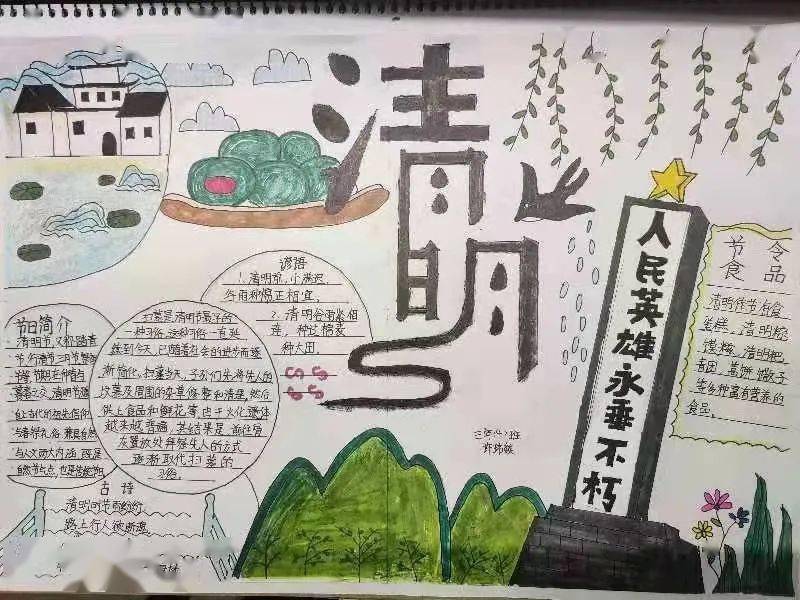 清明
人民英雄永垂不朽
节令
食品
清明佳节有食
蛋糕、清明粽
馍糍、清明粑、
青团、蒸饼、馓子
等多种富有营养的
食品。
谚语
1、清明前,小满迟,
谷雨种棉正相宜。
2、清明谷雨紧相
连,种过棉麦
种大田。
扫墓是清明节最早的
一种习俗,这种习俗一直延
续到今天,已随着社会的进步而逐
渐简化,扫墓当天,子孙们先将先人的
坟墓及周围的杂草修整和清理,然后
供上食品和鲜花等,由于火化遗体
越来越普遍,其结果是,前往骨
灰置放处拜祭先人的方式
逐渐取代扫墓的
习俗。
节日简介
清明节,又称踏青
节、行清节、三月节、祭祖
节等,节期在仲春与
暮春之交,清明节源
自上古时代的祖先信仰
与春祭礼俗,兼具自然
与人文两大内涵,既是
自然节气点,也是传统节日
古诗
清明时节雨纷纷
路上行人欲断魂
三年(2)班